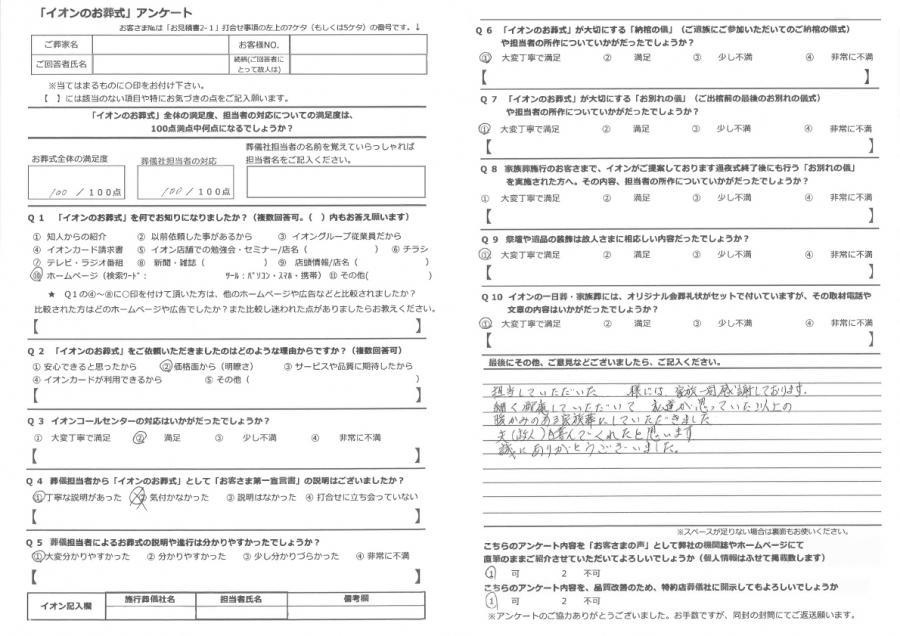 「イオンのお葬式」アンケート
お客さま№は「お見積書2-1」打合せ事項の左上の7ケタ（もしくは5ケタ）の番号です。↓
ご葬家名 お客様NO.
ご回答者氏名 続柄(ご回答者にとって故人は)
※当てはまるものに○印をお付け下さい。
【　】には該当のない項目や特にお気づきの点をご記入願います。
「イオンのお葬式」全体の満足度、担当者の対応についての満足度は、
100点満点中何点になるでしょうか？
お葬式全体の満足度 葬儀社担当者の対応 葬儀社担当者の名前を覚えていらっしゃれば
担当者名をご記入ください。
100 / 100点 100 / 100点
Q 1 「イオンのお葬式」を何でお知りになりましたか？（複数回答可。（ ）内もお答え願います）
① 知人からの紹介 ② 以前依頼した事があるから ③ イオングループ従業員だから
④ イオンカード請求書 ⑤ イオン店舗での勉強会・セミナー/店名（ ） ⑥ チラシ
⑦ テレビ・ラジオ番組 ⑧ 新聞・雑誌（ ） ⑨ 店頭情報/店名（ ）
⑩ ホームページ（検索ﾜｰﾄﾞ： ﾂｰﾙ：ﾊﾟｿｺﾝ・ｽﾏﾎ・携帯） ⑪ その他( )
★ Q1の④～⑧に○印を付けて頂いた方は、他のホームページや広告などと比較されましたか？
比較された方はどのホームページや広告でしたか？また比較し迷われた点がありましたらお教えください。
【 】
Q 2 「イオンのお葬式」をご依頼いただきましたのはどのような理由からですか？（複数回答可）
① 安心できると思ったから ② 価格面から（明瞭さ） ③ サービスや品質に期待したから
④ イオンカードが利用できるから ⑤ その他（
【 】
Q 3 イオンコールセンターの対応はいかがだったでしょうか？
① 大変丁寧で満足 ② 満足 ③ 少し不満 ④ 非常に不満
【 】
Q 4 葬儀担当者から「イオンのお葬式」として「お客さま第一宣言書」の説明はございましたか？
① 丁寧な説明があった ② 気付かなかった ③ 説明はなかった ④ 打合せに立ち会っていない
【 】
Q 5 葬儀担当者によるお葬式の説明や進行は分かりやすかったでしょうか？
① 大変分かりやすかった ② 分かりやすかった ③ 少し分かりづらかった ④ 非常に不満
【 】
イオン記入欄 施行葬儀社名 担当者氏名 備考欄
Q 6 「イオンのお葬式」が大切にする「納棺の儀」（ご遺族にご参加いただいてのご納棺の儀式）
や担当者の所作についていかがだったでしょうか？
① 大変丁寧で満足 ② 満足 ③ 少し不満 ④ 非常に不満
【 】
Q 7 「イオンのお葬式」が大切にする「お別れの儀」（ご出棺前の最後のお別れの儀式）
や担当者の所作についていかがだったでしょうか？
① 大変丁寧で満足 ② 満足 ③ 少し不満 ④ 非常に不満
【 】
Q 8 家族葬施行のお客さまで、イオンがご提案しております通夜式終了後にも行う「お別れの儀」
を実施された方へ。その内容、担当者の所作についていかがだったでしょうか？
① 大変丁寧で満足 ② 満足 ③ 少し不満 ④ 非常に不満
【 】
Q 9 祭壇や遺品の装飾は故人さまに相応しい内容だったでしょうか？
① 大変丁寧で満足 ② 満足 ③ 少し不満 ④ 非常に不満
【 】
Q 10 イオンの一日葬・家族葬には、オリジナル会葬礼状がセットで付いていますが、その取材電話や
文章の内容はいかがだったでしょうか？
① 大変丁寧で満足 ② 満足 ③ 少し不満 ④ 非常に不満
【 】
最後にその他、ご意見などございましたら、ご記入ください。
担当していただいた 様には、家族一同感謝しております。
細く配慮していただいて 私達が思っていた以上の
暖かみのある家族葬にしていただきました
夫(故人)も喜んでくれたと思います
誠にありがとうございました。
※スペースが足りない場合は裏面もお使いください。
こちらのアンケート内容を「お客さまの声」として弊社の機関誌やホームページにて
直筆のままご紹介させていただいてよろしいでしょうか（個人情報はふせて掲載致します）
1 可 2 不可
こちらのアンケート内容を、品質改善のため、特約店葬儀社に開示してもよろしいでしょうか
1 可 2 不可
※アンケートのご協力ありがとうございました。お手数ですが、同封の封筒にてご返送願います。